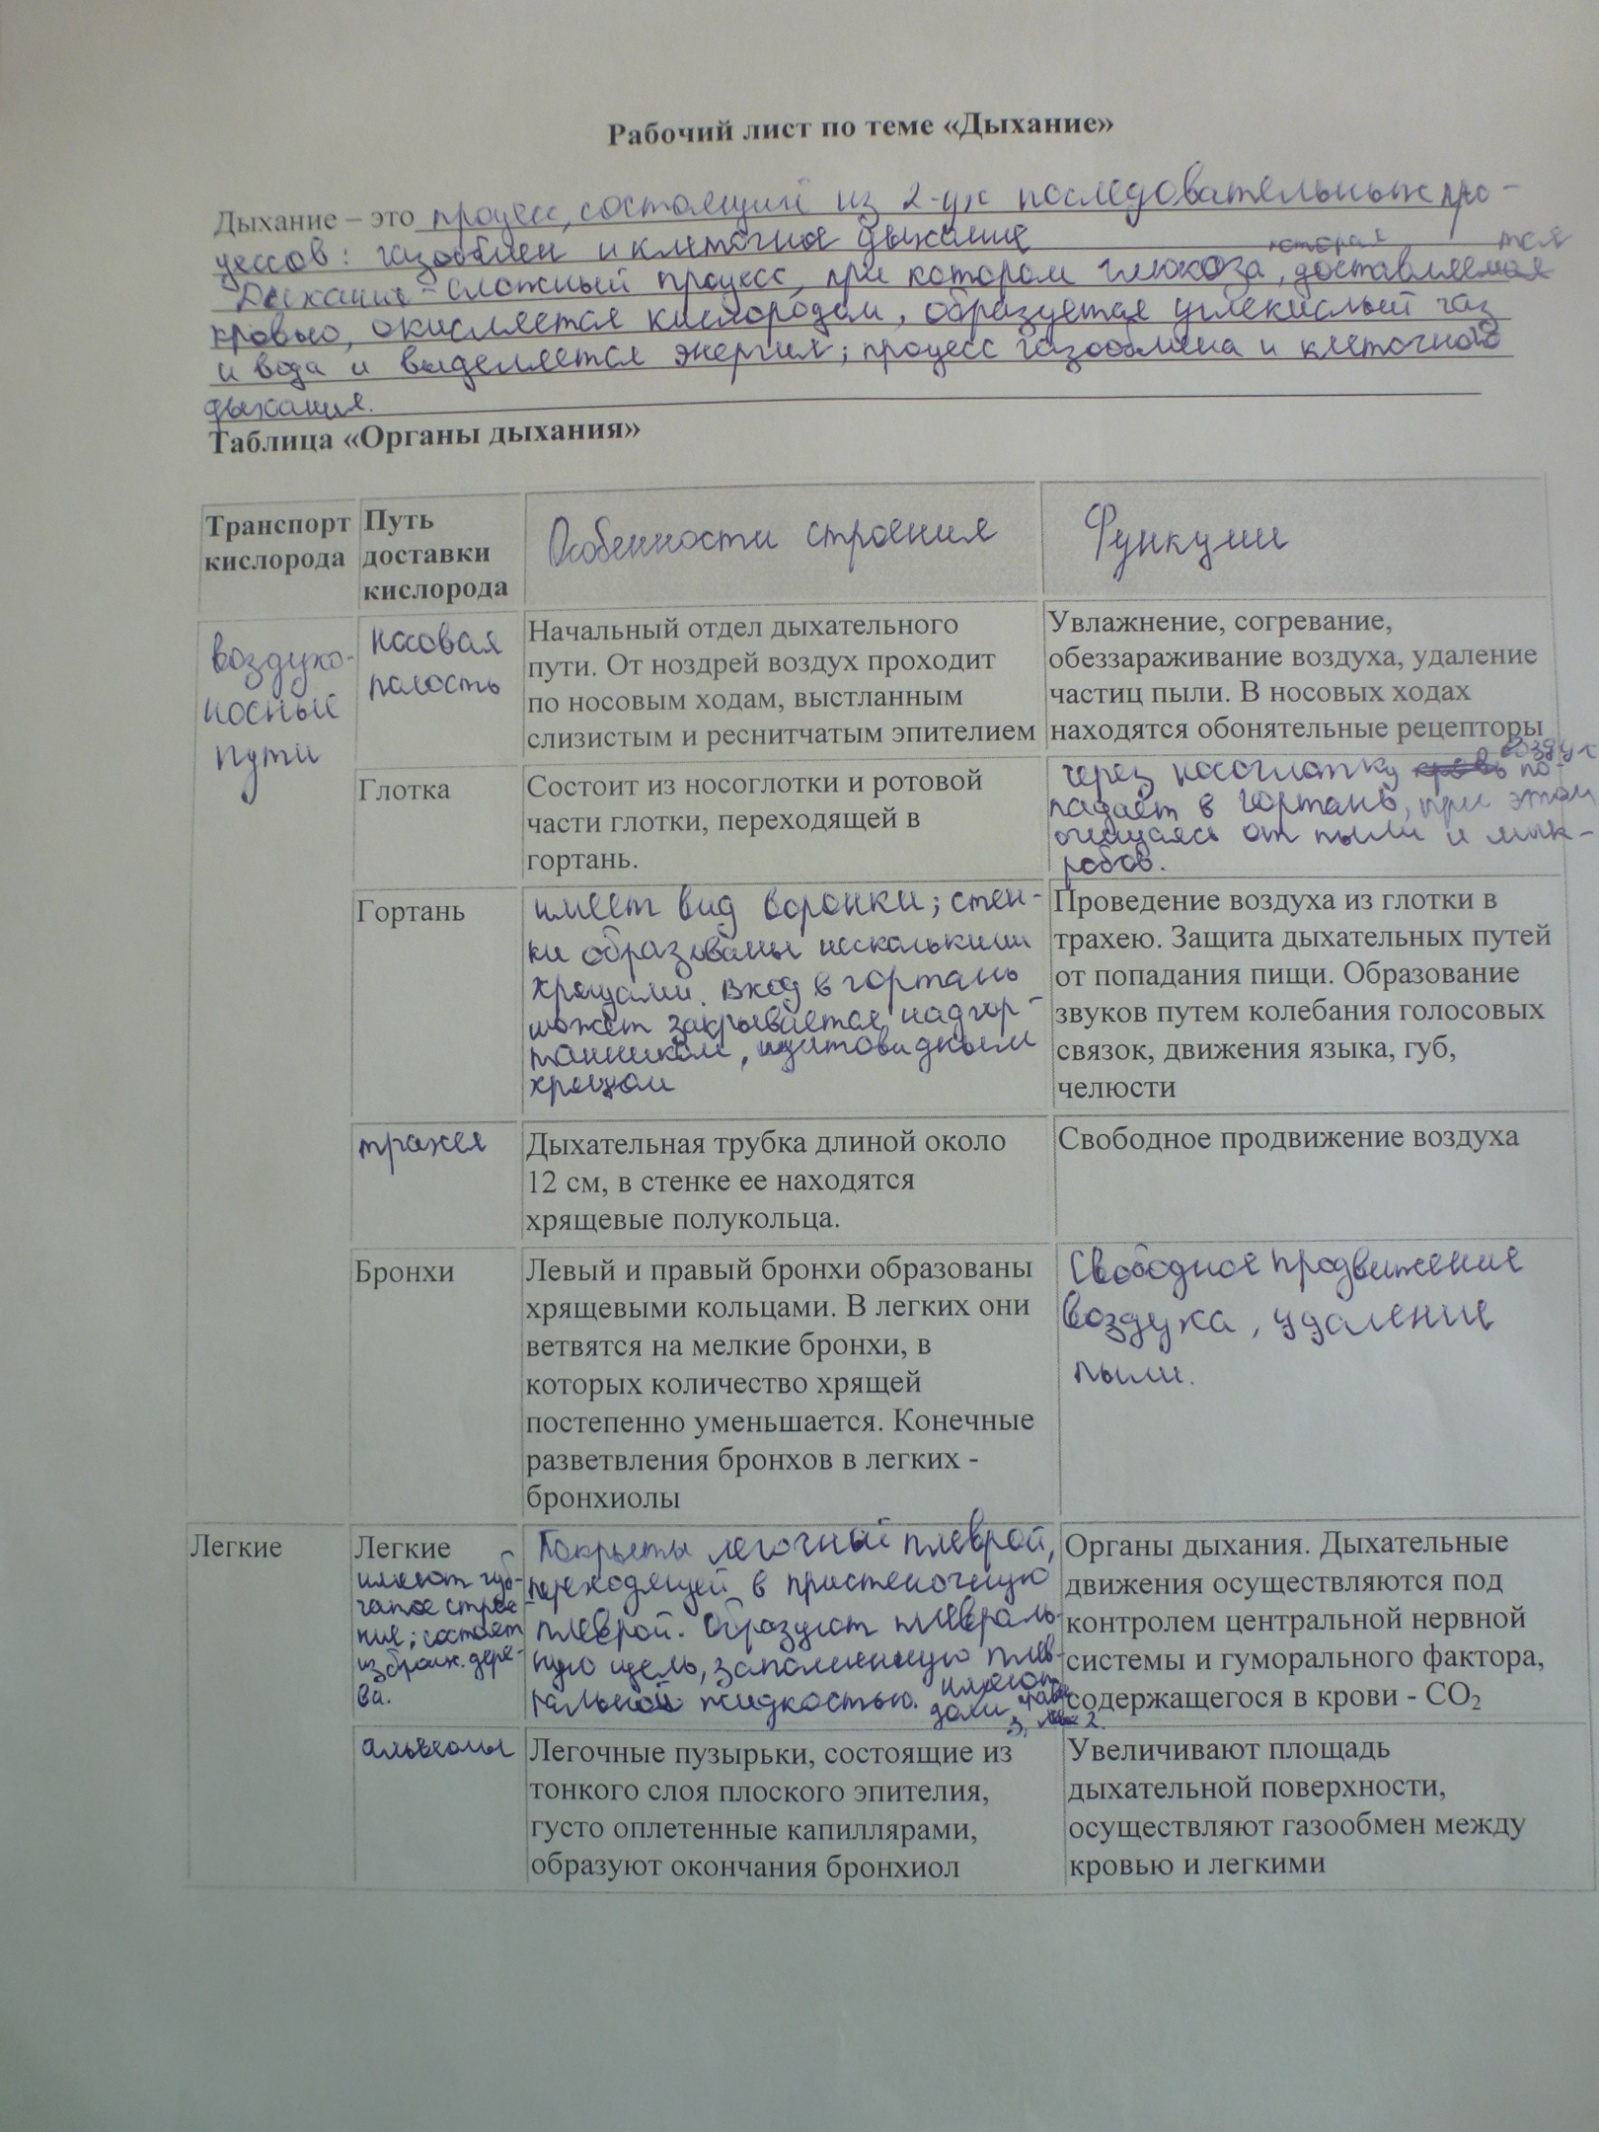 Рабочий лист по теме «Дыхание»
Дыхание – это процесс, состоящий из 2-ух последовательных про-
цессов: газообмен и клеточное дыхание
которая тся
Дыхание - сложный процесс, при котором глюкоза, доставляемая
кровью, окисляется кислородом, образуется углекислый газ
и вода и выделяется энергия; процесс газообмена и клеточного
дыхания.
Таблица «Органы дыхания»
Транспорт кислорода
Путь доставки кислорода
Особенности строения
Функции
воздухо-
носные
пути
носовая
полость
Начальный отдел дыхательного
пути. От ноздрей воздух проходит
по носовым ходам, выстланным
слизистым и реснитчатым эпителием
Увлажнение, согревание,
обеззараживание воздуха, удаление
частиц пыли. В носовых ходах
находятся обонятельные рецепторы
Глотка
Состоит из носоглотки и ротовой
части глотки, переходящей в
гортань.
воздух
через носоглотку кровь по-
падает в гортань, при этом
очищаясь от пыли и мик-
робов.
Гортань
имеет вид воронки; стен-
ки образованы несколькими
хрящами. Вход в гортань
может закрывается надгор-
танником, щитовидным
хрящом
Проведение воздуха из глотки в
трахею. Защита дыхательных путей
от попадания пищи. Образование
звуков путем колебания голосовых
связок, движения языка, губ,
челюсти
трахея
Дыхательная трубка длиной около
12 см, в стенке ее находятся
хрящевые полукольца.
Свободное продвижение воздуха
Бронхи
Левый и правый бронхи образованы
хрящевыми кольцами. В легких они
ветвятся на мелкие бронхи, в
которых количество хрящей
постепенно уменьшается. Конечные
разветвления бронхов в легких -
бронхиолы
Свободное продвижение
воздуха, удаление
пыли.
Легкие
Легкие
имеют губ-
чатое строе-
ние; состоят
из бронх. дере-
ва.
Покрыты легочный плеврой,
переходящей в пристеночную
плеврой. Образуют плевраль-
ную щель, заполненную плев-
ральной жидкостью. имеют
доли, прав.
3, 2.
Органы дыхания. Дыхательные
движения осуществляются под
контролем центральной нервной
системы и гуморального фактора,
содержащегося в крови - CO₂
альвеолы
Легочные пузырьки, состоящие из
тонкого слоя плоского эпителия,
густо оплетенные капиллярами,
образуют окончания бронхиол
Увеличивают площадь
дыхательной поверхности,
осуществляют газообмен между
кровью и легкими